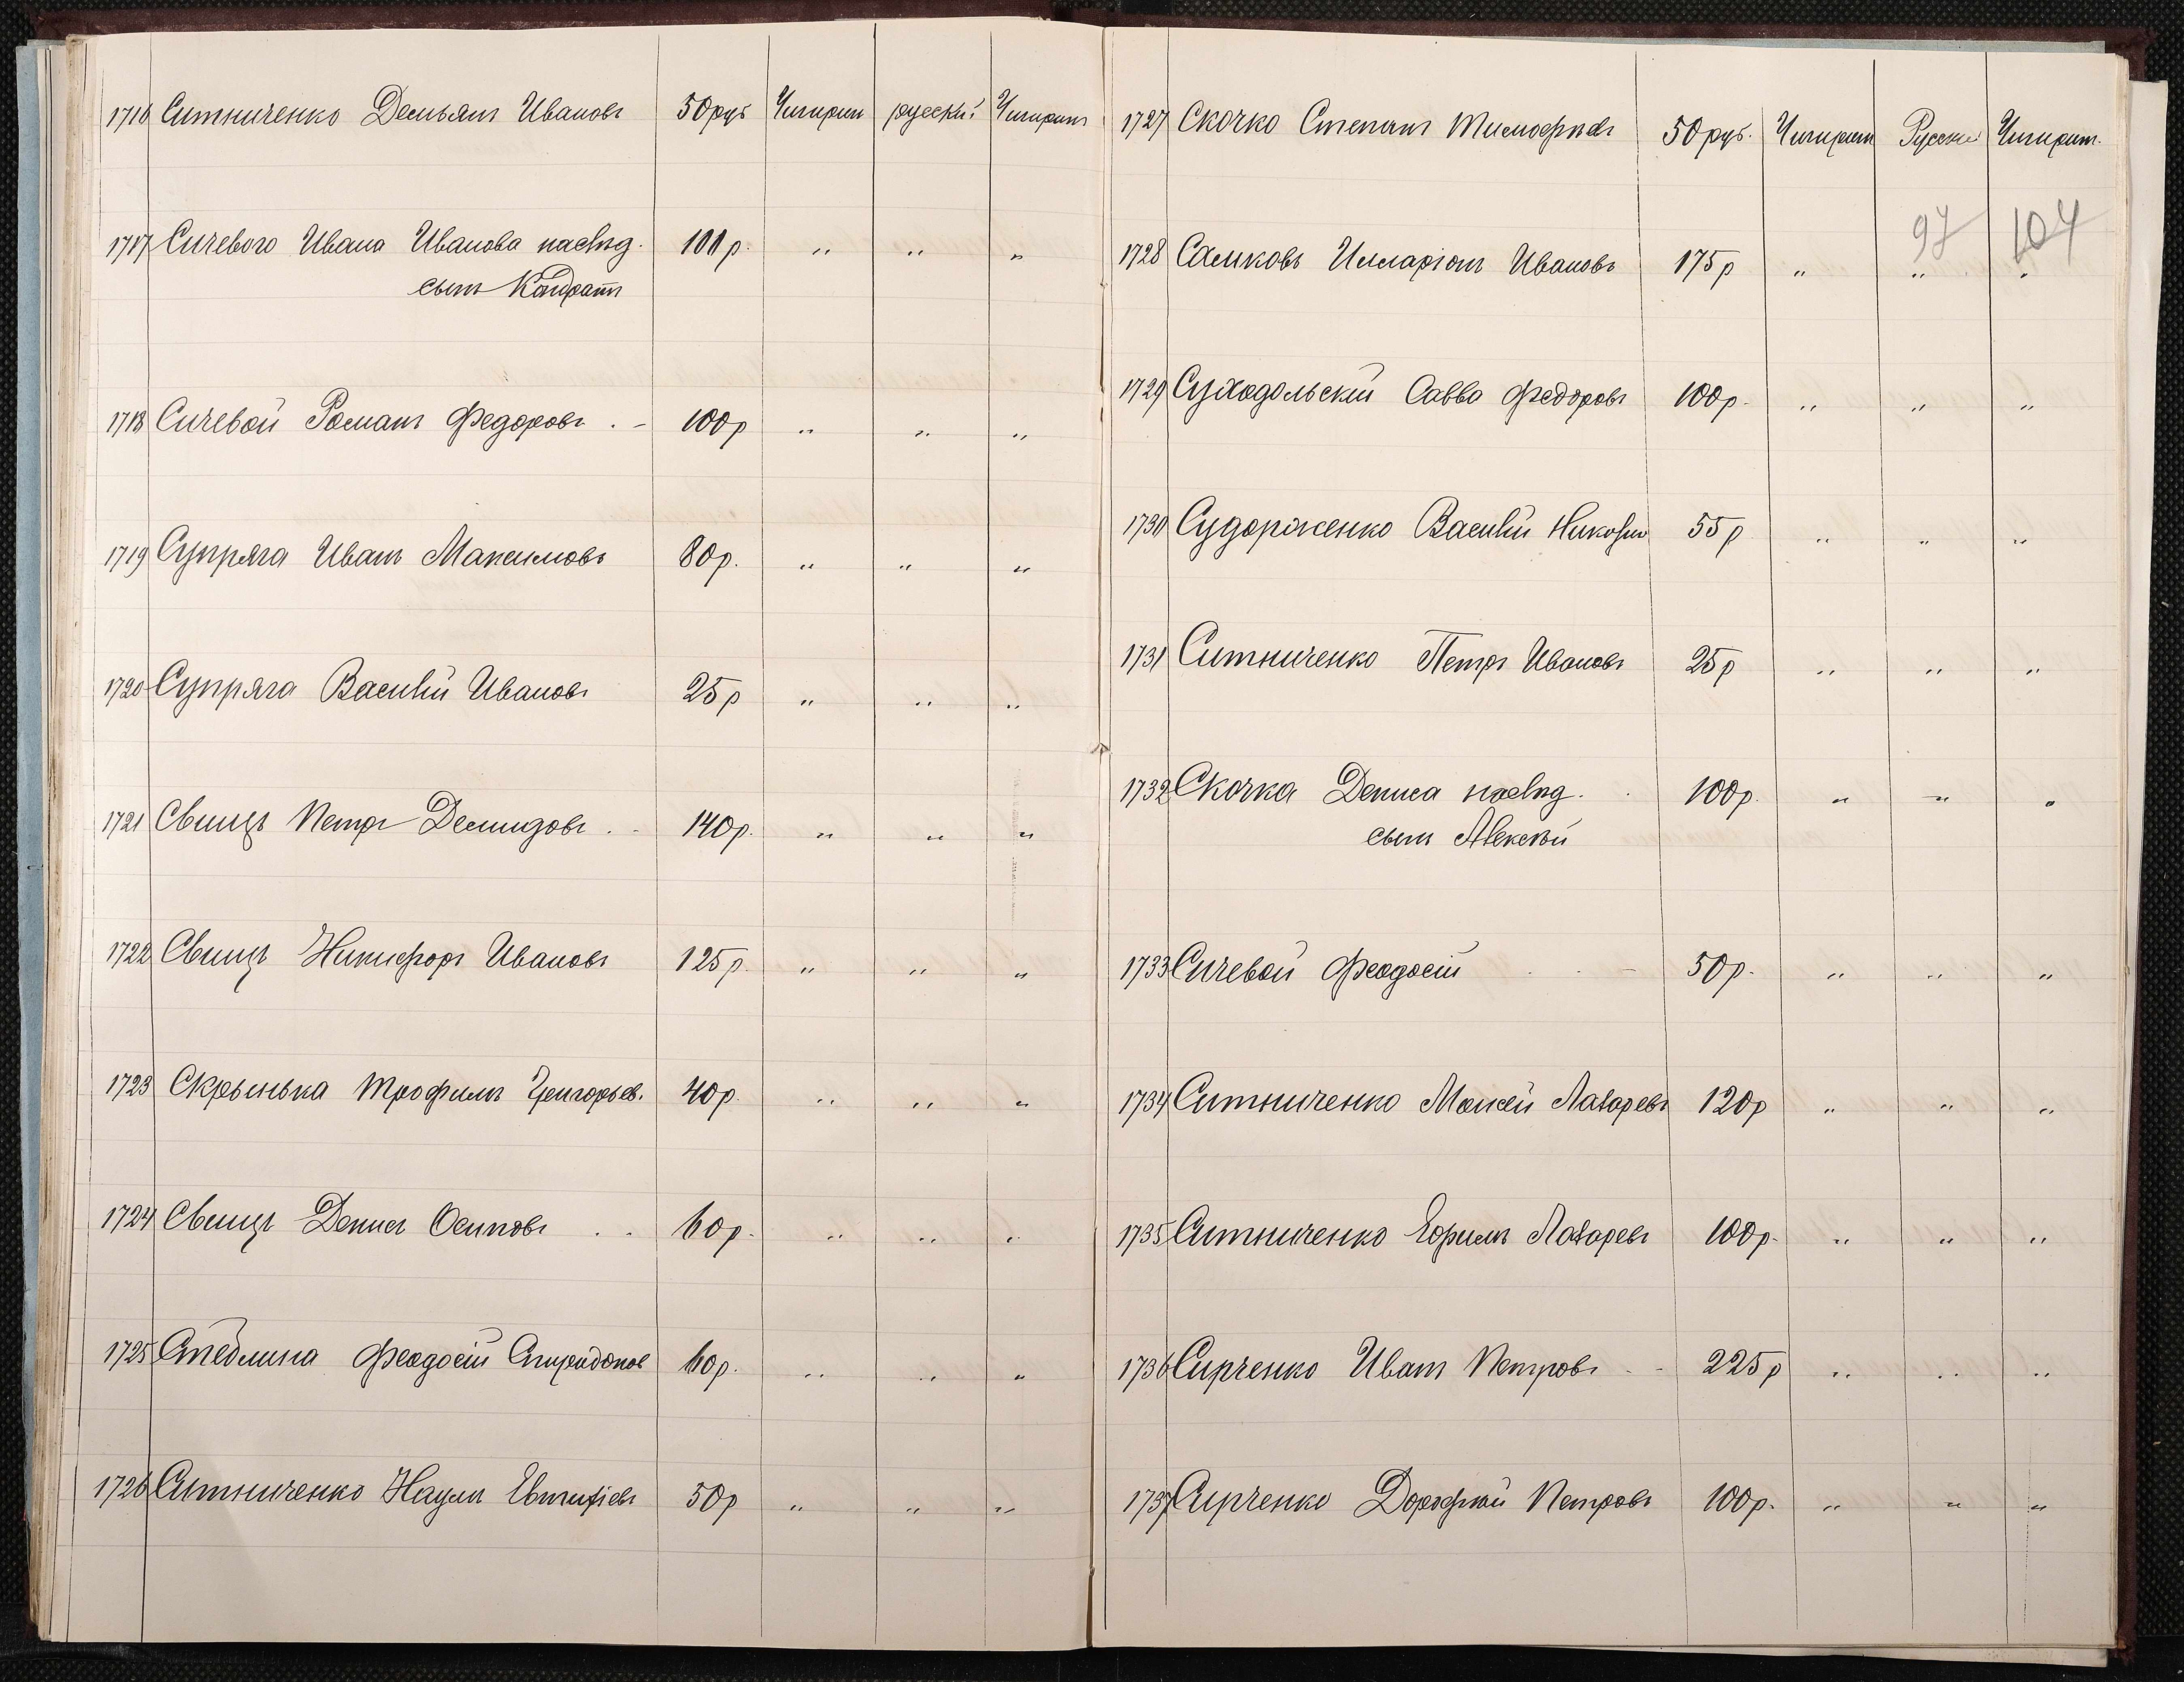 1716 Ситниченко Демьянъ Ивановъ 50 руб Чигирин русскій Чигиринъ
1717 Сичевого Ивана Иванова наслѣд. 100 р. „ „ „
сынъ Кондратъ
1718 Сичевой Романъ Федоровъ . - 100 р „ „ „
1719 Супряга Иванъ Максимовъ 80 р. „ „ „
1720 Супряга Василій Ивановъ 25 р „ „ „
1721 Свищъ Петръ Демидовъ . - 140 р. „ „ „
1722 Свищъ Никифоръ Ивановъ 125 р. „ „ „
1723 Скрынька Трофимъ Григорьев. 40 р. „ „ „
1724 Свищъ Денисъ Осиповъ . . 60 р. „ „ „
1725 Стеблина Феодосій Спиридонов 60 р. „ „ „
1726 Ситниченко Наумъ Евтихіевъ 50 р „ „ „
1727 Скочко Степанъ Тимофѣевъ 50 руб. Чигирин Русски Чигирин.
97 104
1728 Самковъ Илларіонъ Ивановъ 175 р „ „ „
1729 Суходольскій Савва Федоровъ 100 р. „ „ „
1730 Судорженко Василій 55 р „ „ „
1731 Ситниченко Петръ Ивановъ 25 р „ „ „
1732 Скочка Дениса наслѣд. . 100 р. „ „ „
сынъ Алексѣй
1733 Сичевой Феодосій . . - 50 р. „ „ „
1734 Ситниченко Моисей Лазаревъ 120 р „ „ „
1735 Ситниченко Ефимъ Лазаревъ 100 р. „ „ „
1736 Сирченко Иванъ Петровъ - - 225 р „ „ „
1737 Сирченко Дорофѣй Петровъ 100 р. „ „ „